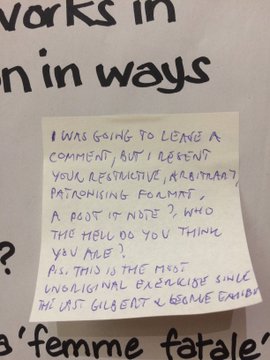 works in
on in ways
I WAS GOING TO LEAVE A
COMMENT, BUT I RESENT
YOUR RESTRICTIVE, ARBITRARY,
PATRONISING FORMAT.
A POST IT NOTE?, WHO
THE HELL DO YOU THINK
YOU ARE?
P.S. THIS IS THE MOST
UNORIGINAL EXERCISE SINCE
THE LAST GILBERT & GEORGE EXHIB
?
a 'femme fatale'